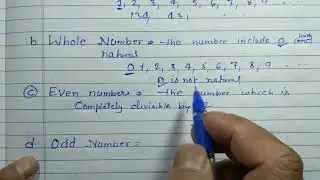 1, 2, 3, 4, 5, 6, 7, 8, 9
134, 431,
b Whole Number = the number include 0
natural
0 1, 2, 3, 4, 5, 6, 7, 8, 9 ....
0 is not natural
c Even numbers = the number which is
Completely divisible by 2
d Odd Number =